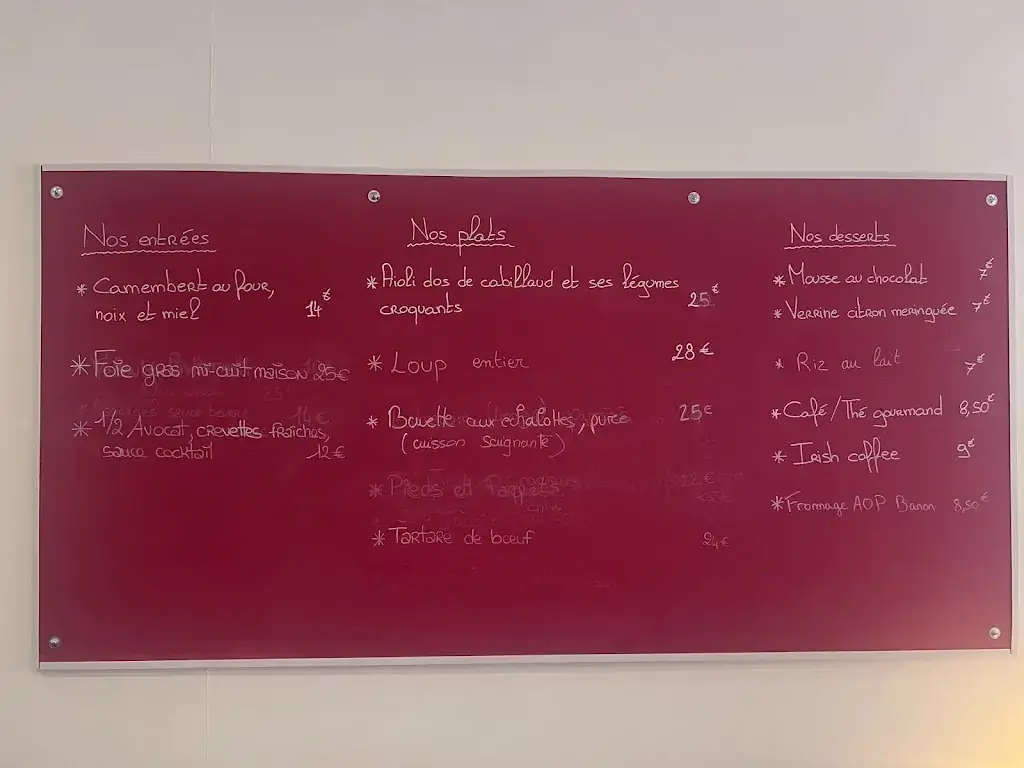 Nos entrées
* Camembert au four,
noix et miel 14€
* Foie gras mi-cuit maison 25€
* 1/2 Avocat, crevettes fraîches,
sauce cocktail 12€
Nos plats
* Aioli dos de cabillaud et ses légumes
croquants 25€
* Loup entier 28€
* Bavette aux échalottes, purée 25€
(cuisson saignante)
* Pieds et Paquets 22€
* Tartare de bœuf 24€
Nos desserts
* Mousse au chocolat 7€
* Verrine citron meringuée 7€
* Riz au lait 7€
* Café/Thé gourmand 8,50€
* Irish coffee 9€
* Fromage AOP Banon 8,50€